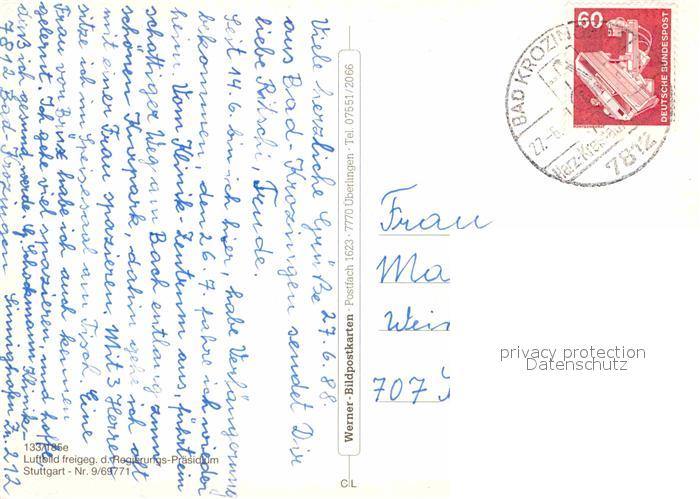 Viele herzliche Grüße 27.6.88.
aus Bad-Krozingen sendet Dir
liebe Ritschi, Trude.
Seit 14.6. bin ich hier, habe Verlängerung
bekommen, den 26.7. fahre ich wieder
heim. Vom Klinik Zentrum aus, führt ein
schattiger Weg am Bach entlang zum
schönen Kurpark, dahin gehe ich oft
mit einer Frau spazieren. Mit 3 Herren
sitze ich im Speisesaal am Tisch. Eine
Frau von habe ich auch kennen
gelernt. Ich gehe viel spazieren, und hoffe
daß ich gesund werde. Klinik-
7812 Bad-Krozingen Sinnighofen Zi. 212
133/185e
Luftbild freigeg. d. Regierungs-Präsidium
Stuttgart - Nr. 9/69771
Werner-Bildpostkarten · Postfach 1623 · 7770 Überlingen · Tel. 07551/2066
C L
BAD KROZIN
27.-6.
Herz-Kreislauf
7812
60
DEUTSCHE BUNDESPOST
Frau
Ma
Wei
707
privacy protection
Datenschutz